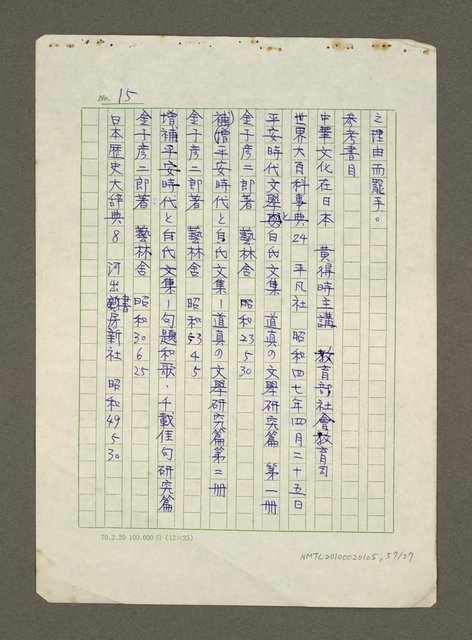 No. 15
之理由而罷手。
參考書目
中華文化在日本 黃得時主講 教育部社會教育司
世界大百科事典24 平凡社 昭和四七年四月二十五日
平安時代文學と白氏文集 道真の文學研究篇 第一冊
金子彥二郎著 藝林舍 昭和23 5 30
補(增)平安時代と白氏文集－道真の文學研究篇第二冊
金子彥二郎著 藝林舍 昭和53 4 5
增補平安時代と白氏文集－句題和歌、千載佳句研究篇
金子彥二郎著 藝林舍 昭和30 6 25
日本歷史大辞典8 河出書房新社 昭和49 5 30
70.3.20 100.000份(12×25)
NMTL20100020105, 57/57